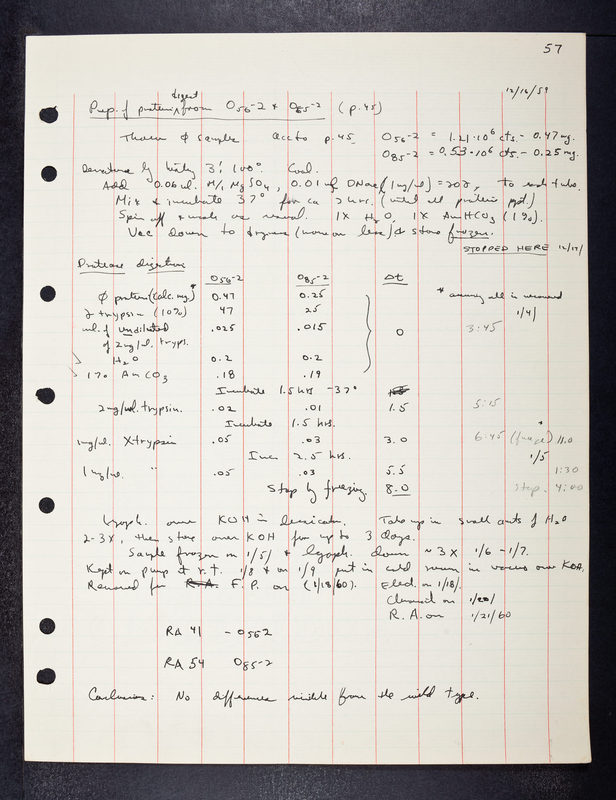 57
12/16/59
digest
Prep. of protein from O56-2 & O85-2 (p. 45)
Thaw φ sample acc to p. 45. O56-2 = 1.21·10⁶ cts. - 0.47 mg.
O85-2 = 0.53·10⁶ cts. - 0.25 mg.
Denature by heating 3', 100°. Cool.
Add 0.06 ml. M/1 MgSO4, 0.01 ml DNase (1 mg/ml) = 20γ, to each tube.
Mix & incubate 37° for ca 2 hrs. (until all protein ppt)
Spin off & wash as usual. 1X H2O, 1X AmHCO3 (1%).
Vac down to dryness (more or less) & store frozen.
STOPPED HERE 12/17/
Protease digestion
O56-2 O85-2 Δt
φ protein (calc. mg.)* 0.47 0.25 * assuming all is recovered
γ trypsin (10%) 47 25 1/4/
ml. of undiluted .025 .015 0 3:45
of 2 mg/ml. tryps.
H2O 0.2 0.2
1% AmCO3 .18 .19
Incubate 1.5 hrs - 37°
2 mg/ml. trypsin. .02 .01 1.5 5:15
Incubate 1.5 hrs.
1 mg/ml. X-trypsin .05 .03 3.0 6:45 (freeze) 11.0
Inc. 2.5 hrs. 1/5
1 mg/ml. " .05 .03 5.5 1:30
Stop by freezing 8.0 Stop. 4:00
Lyoph. over KOH in dessicator. Take up in small amts of H2O
2-3X, then store over KOH for up to 3 days.
Sample frozen on 1/5/ & lyoph. down ~3X 1/6 - 1/7.
Kept on pump at r.t. 1/8 & on 1/9 put in cold room in vacuo over KOH.
Removed for R.A. F.P. on (1/18/60). Elect. on 1/18/.
Chromat on 1/20/
R.A. on 1/21/60
RA 41 - O56-2
RA 54 O85-2
Conclusion: No difference visible from the wild type.